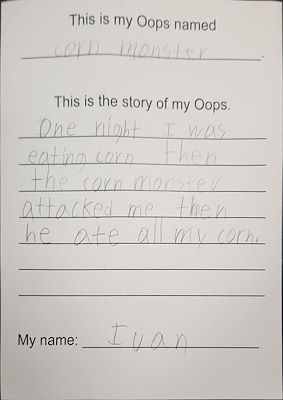 This is my Oops named
corn monster.
This is the story of my Oops.
One night I was
eating corn then
the corn monster
attacked me then
he ate all my corn.
My name: Ivan